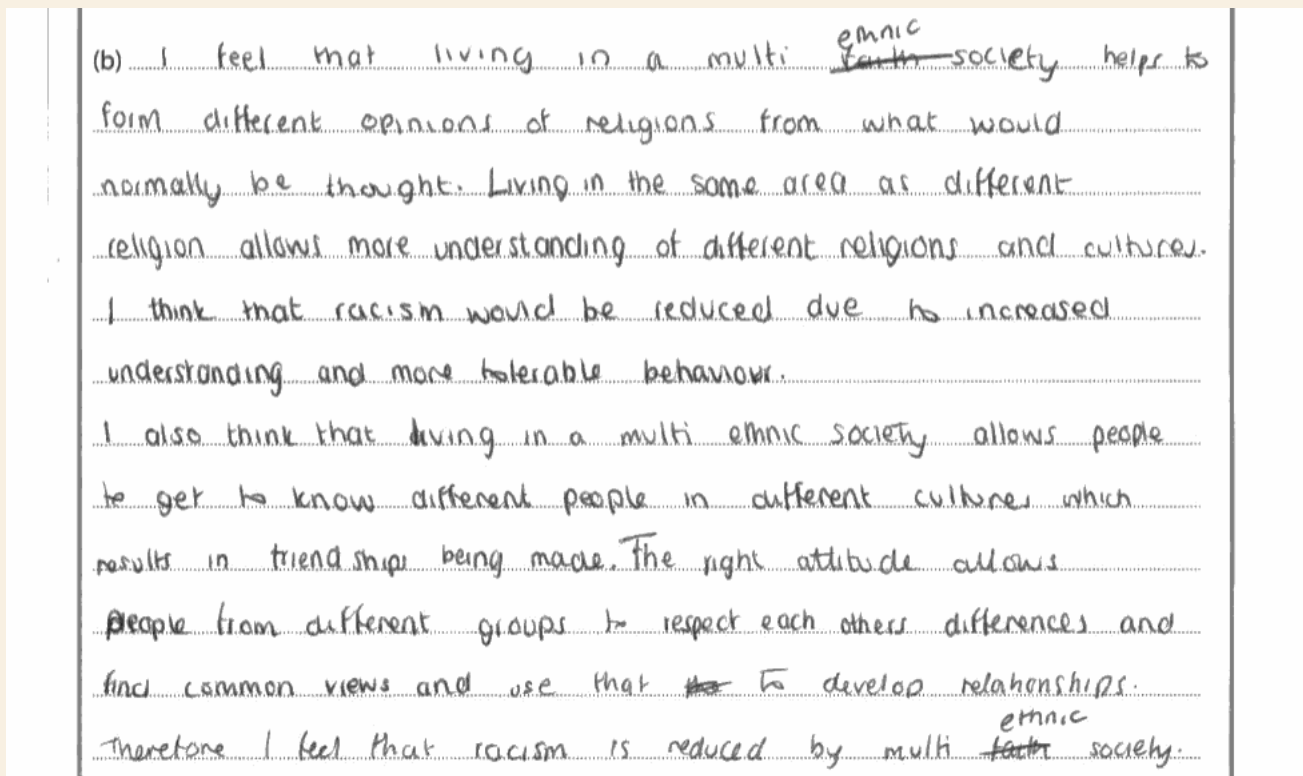 (b) I feel that living in a multi ~~faith~~ ethnic society helps to
form different opinions of religions from what would
normally be thought. Living in the same area as different
religion allows more understanding of different religions and cultures.
I think that racism would be reduced due to increased
understanding and more tolerable behaviour.
I also think that living in a multi ethnic society allows people
to get to know different people in different cultures which
results in friend ships being made. The right attitude allows
people from different groups to respect each others differences and
find common views and use that ~~the~~ to develop relationships.
Therefore I feel that racism is reduced by multi ~~faith~~ ethnic society.